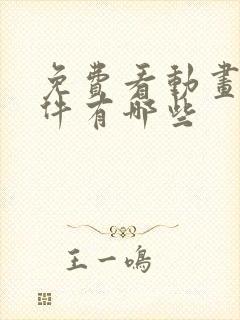 免費看動畫
件有哪些
王一鳴